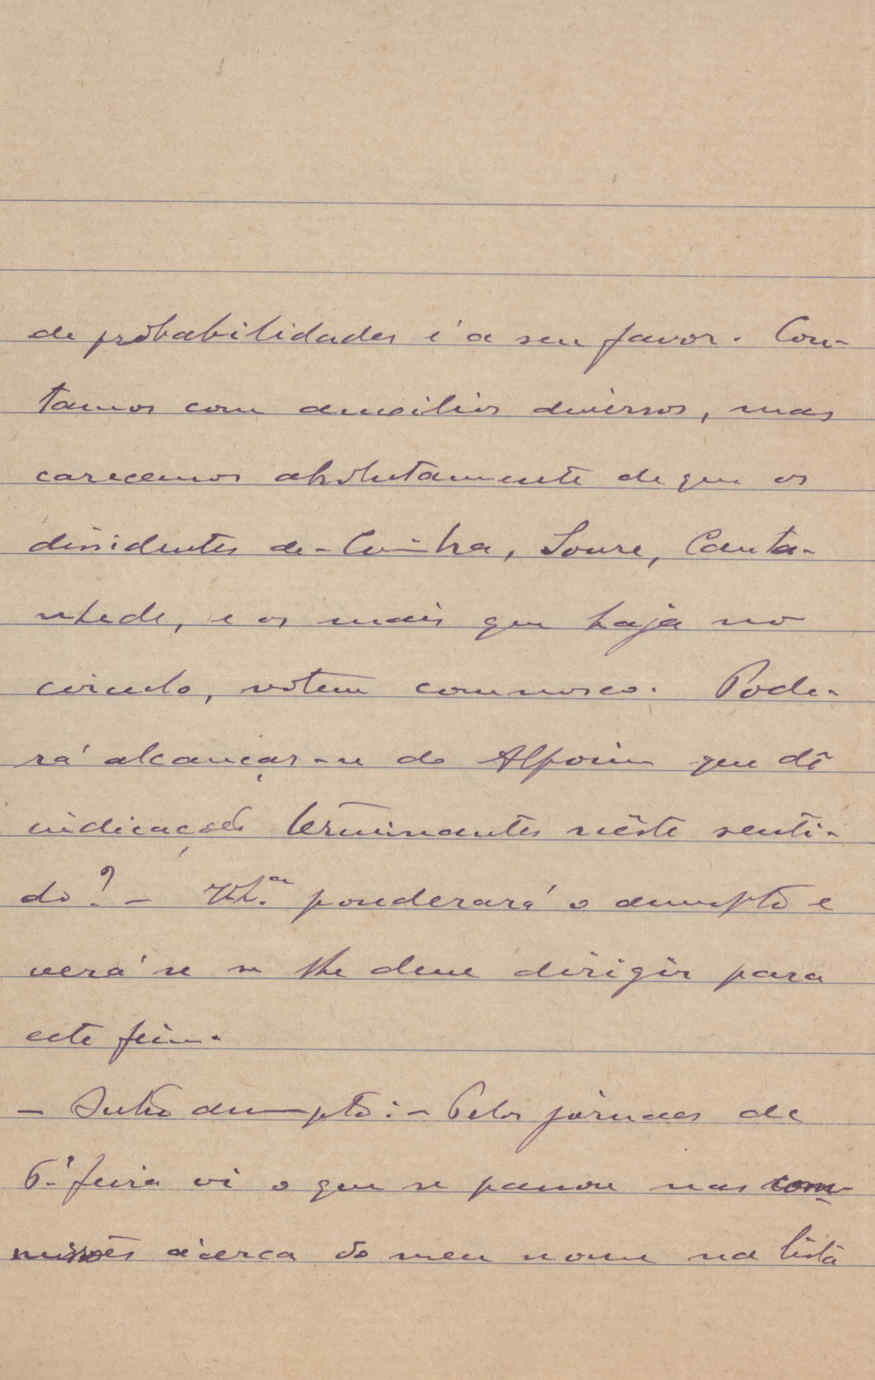 de probabilidades é a seu favor. Con-
tamos com auxilios diversos, mas
carecemos absolutamente de que os
dissidentes de Coimbra, Soure, Canta-
nhede, e os mais que haja no
circulo, votem comnosco. Pode-
rá alcançar-se do Alpoim que dê
indicações terminantes nêste senti-
do? - V. Ex.ª ponderará o assumpto e
verá se se lhe deve dirigir para
este fim.
- Outro assumpto: - Pelos jornaes de
6.ª feira vi o que se passou nas com-
missões ácerca do meu nome na lista